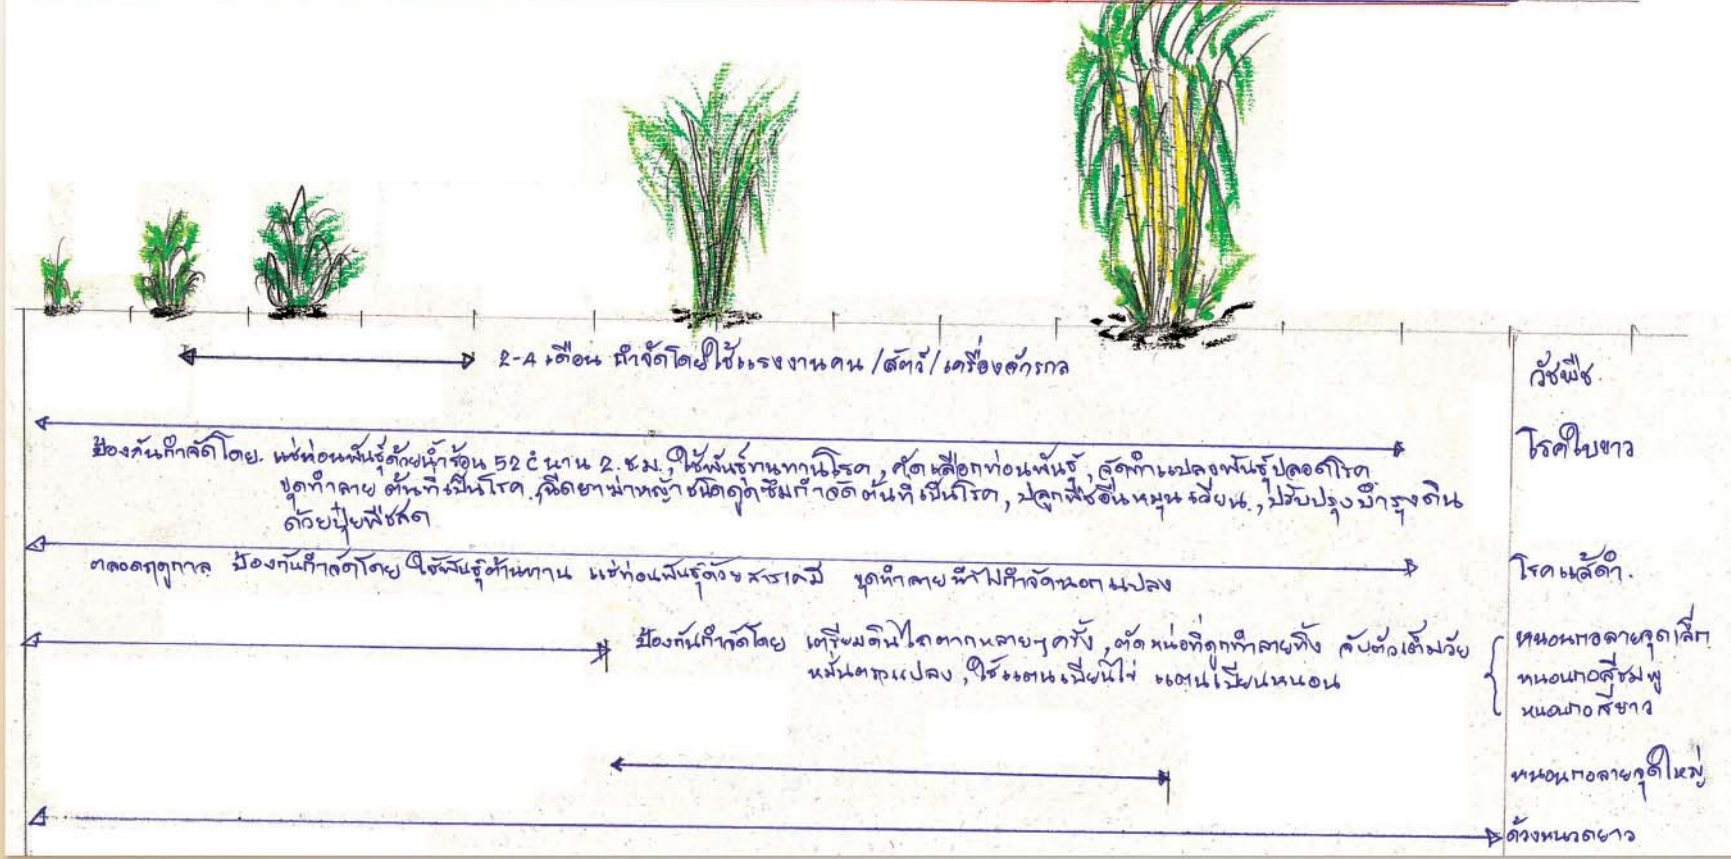 2-4 เดือน กำจัดโดยใช้แรงงานคน /สัตว์/เครื่องจักรกล
วัชพืช.
ป้องกันกำจัดโดย. แช่ท่อนพันธุ์ด้วยน้ำร้อน 52 c̊ นาน 2. ช.ม., ใช้พันธุ์ทนทานโรค, คัดเลือกท่อนพันธุ์, จัดทำแปลงพันธุ์ปลอดโรค
โรคใบขาว
ขุดทำลาย ต้นที่เป็นโรค, ฉีดยาฆ่าหญ้าชนิดดูดซึมกำจัดต้นที่เป็นโรค, ปลูกพืชอื่นหมุนเวียน., ปรับปรุงบำรุงดิน
ด้วยปุ๋ยพืชสด
ตลอดฤดูกาล ป้องกันกำจัดโดย ใช้พันธุ์ต้านทาน แช่ท่อนพันธุ์ด้วยสารเคมี ขุดทำลาย นำไปกำจัดนอกแปลง
โรคแส้ดำ.
ป้องกันกำจัดโดย เตรียมดินไถตากหลายๆครั้ง, ตัดหน่อที่ถูกทำลายทิ้ง จับตัวเต็มวัย
หมั่นตรวจแปลง, ใช้แตนเบียนไข่ แตนเบียนหนอน
หนอนกอลายจุดเล็ก
หนอนกอสีชมพู
หนอนกอสีขาว
หนอนกอลายจุดใหญ่
ด้วงหนวดยาว